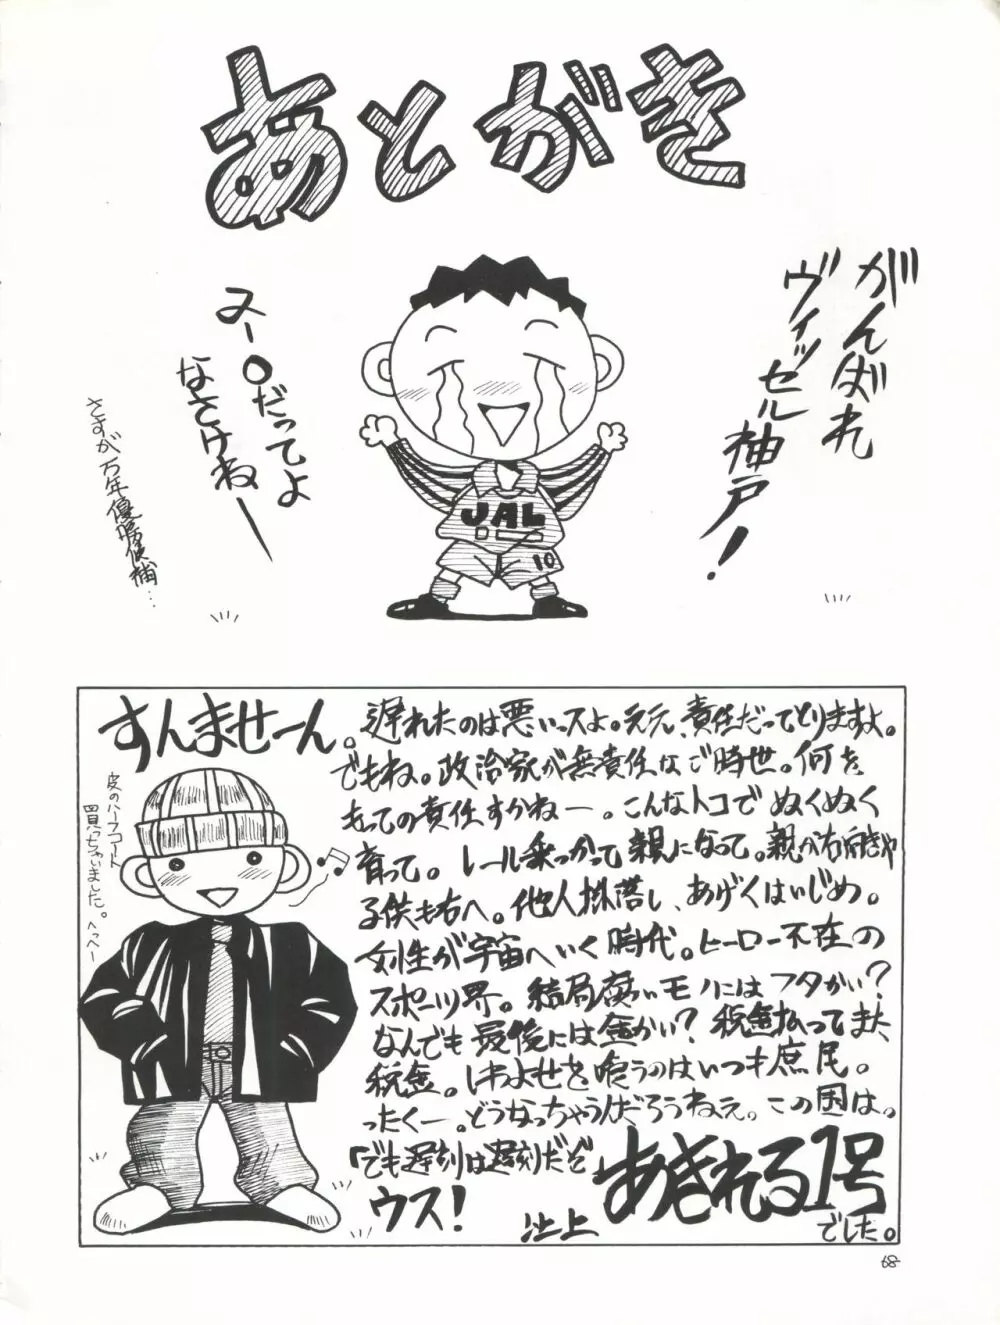 あとがき
がんばれ
ヴィッセル神戸!
JAL
10
又一〇だってよ
なさけねー
さすが万年優勝候補…
すんませーん。
皮のハーフコート
買っちゃいました。へっへー
遅れたのは悪いっスよ。ええ、責任だってとりますよ。
でもね。政治家が無責任なご時世。何を
もっての責任すかねー。こんなトコでぬくぬく
育って。レール乗っかって親になって。親が右向きゃ
子供も右へ。他人蹴落し、あげくはいじめ。
女性が宇宙へいく時代。ヒーロー不在の
スポーツ界。結局腐いモノにはフタかい?
なんでも最後には金かい?税金払ってまた、
税金。しわよせを喰うのはいつも庶民。
ったくー。どうなっちゃうんだろうねえ。この国は。
「でも遅刻は遅刻だぞ」
ウス!
あきれる1号
池上
でした。
68